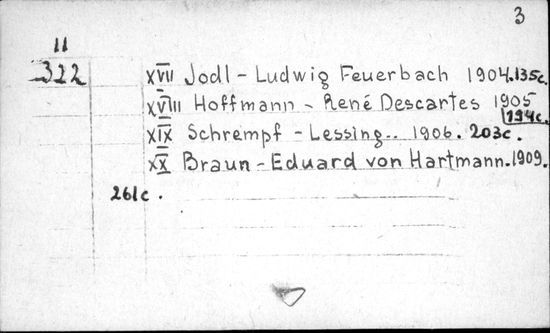 3
II
322
XVII Jodl - Ludwig Feuerbach 1904.135c.
XVIII Hoffmann - René Descartes 1905
194c.
XIX Schrempf - Lessing.. 1906. 203c.
XX Braun - Eduard von Hartmann. 1909.
261c.